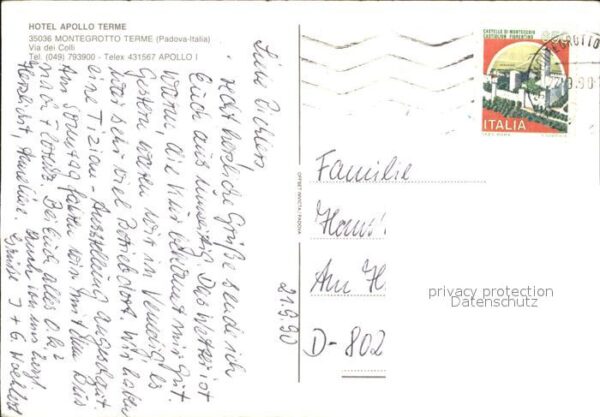 HOTEL APOLLO TERME
35036 MONTEGROTTO TERME (Padova-Italia)
Via dei Colli
Tel. (049) 793900 - Telex 431567 APOLLO I
21.9.90
Liebe
recht herzliche Grüße sende ich
Euch aus Das Wetter ist
warm, die Kur bekommt mir gut.
Gestern waren wir in Venedig, es
war sehr viel Betrieb dort. Wir haben
eine Tizian-Ausstellung angeschaut.
Am Sonntag fahren wir mit dem Bus
nach Florenz. Bei Euch alles o.k?
Herzlichst, Anneliese. Auch von uns herzl.
Grüße I + G
OFFSET INVICTA-PADOVA
CASTELLO DI MONTECCHIO
CASTIGLION FIORENTINO
ITALIA
Familie
Hans
Am H
D-802
privacy protection
Datenschutz